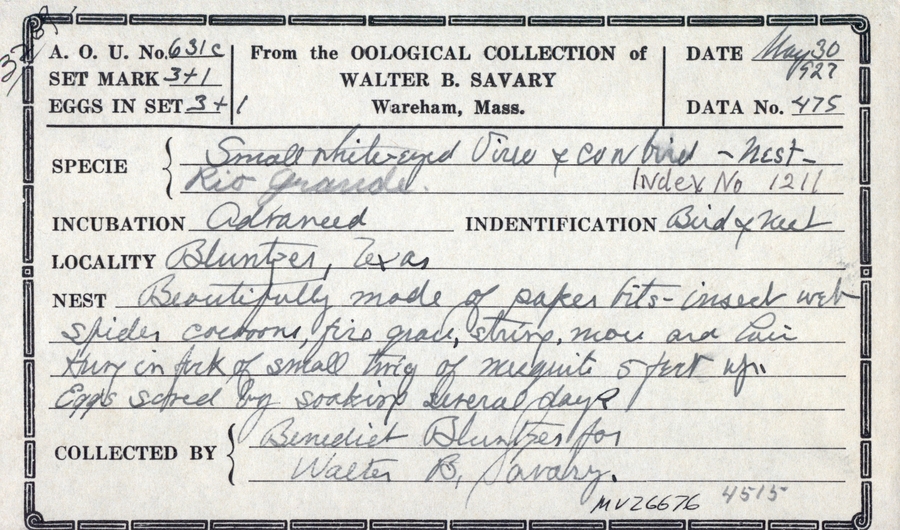 A. O. U. No. 631c
SET MARK 3+1
EGGS IN SET 3+1
From the OOLOGICAL COLLECTION of
WALTER B. SAVARY
Wareham, Mass.
DATE May 30
1927
DATA No. 475
SPECIE Small white-eyed Vireo & cow bird - Nest-
Rio Grande. Index No 1211
INCUBATION Advanced INDENTIFICATION Bird & Nest
LOCALITY Bluntzer, Texas
NEST Beautifully made of paper bits - insect web
spider cocoons, fine grass, string, moss and hair
Hung in fork of small twig of mesquite 5 feet up.
Eggs saved by soaking several days
COLLECTED BY Benedict Bluntzer for
Walter B. Savary.
MVZ6676 4515